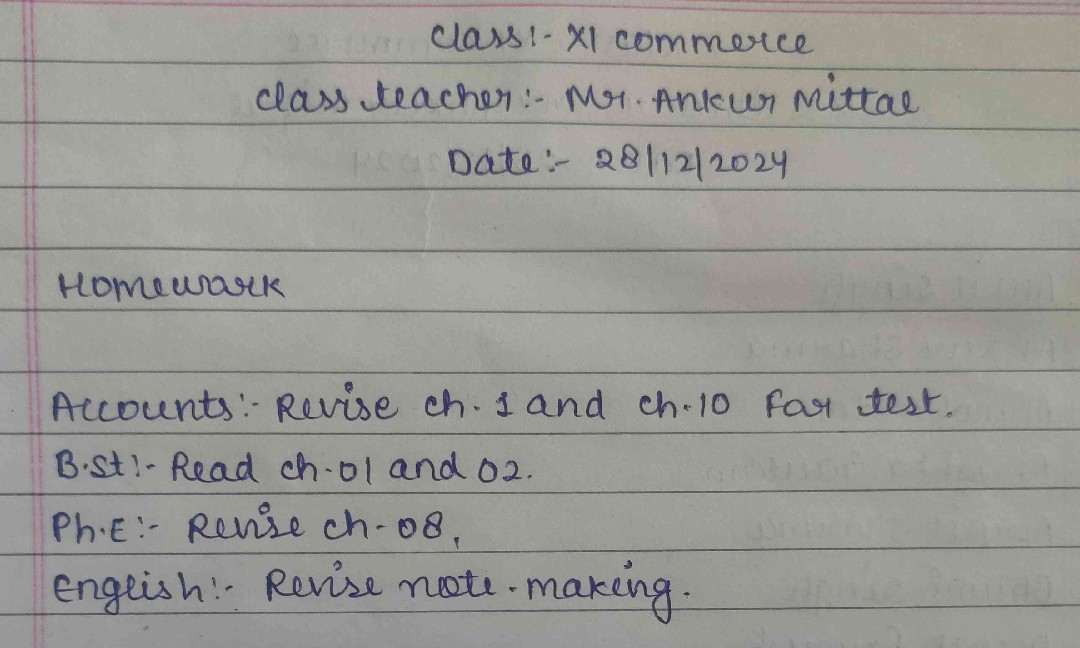 Class:- XI commerce
Class teacher:- Mr. Ankur Mittal
Date:- 28/12/2024
Homework
Accounts:- Revise ch.1 and ch.10 For test.
B.St:- Read ch-01 and 02.
Ph.E:- Revise ch-08,
English:- Revise note-making.